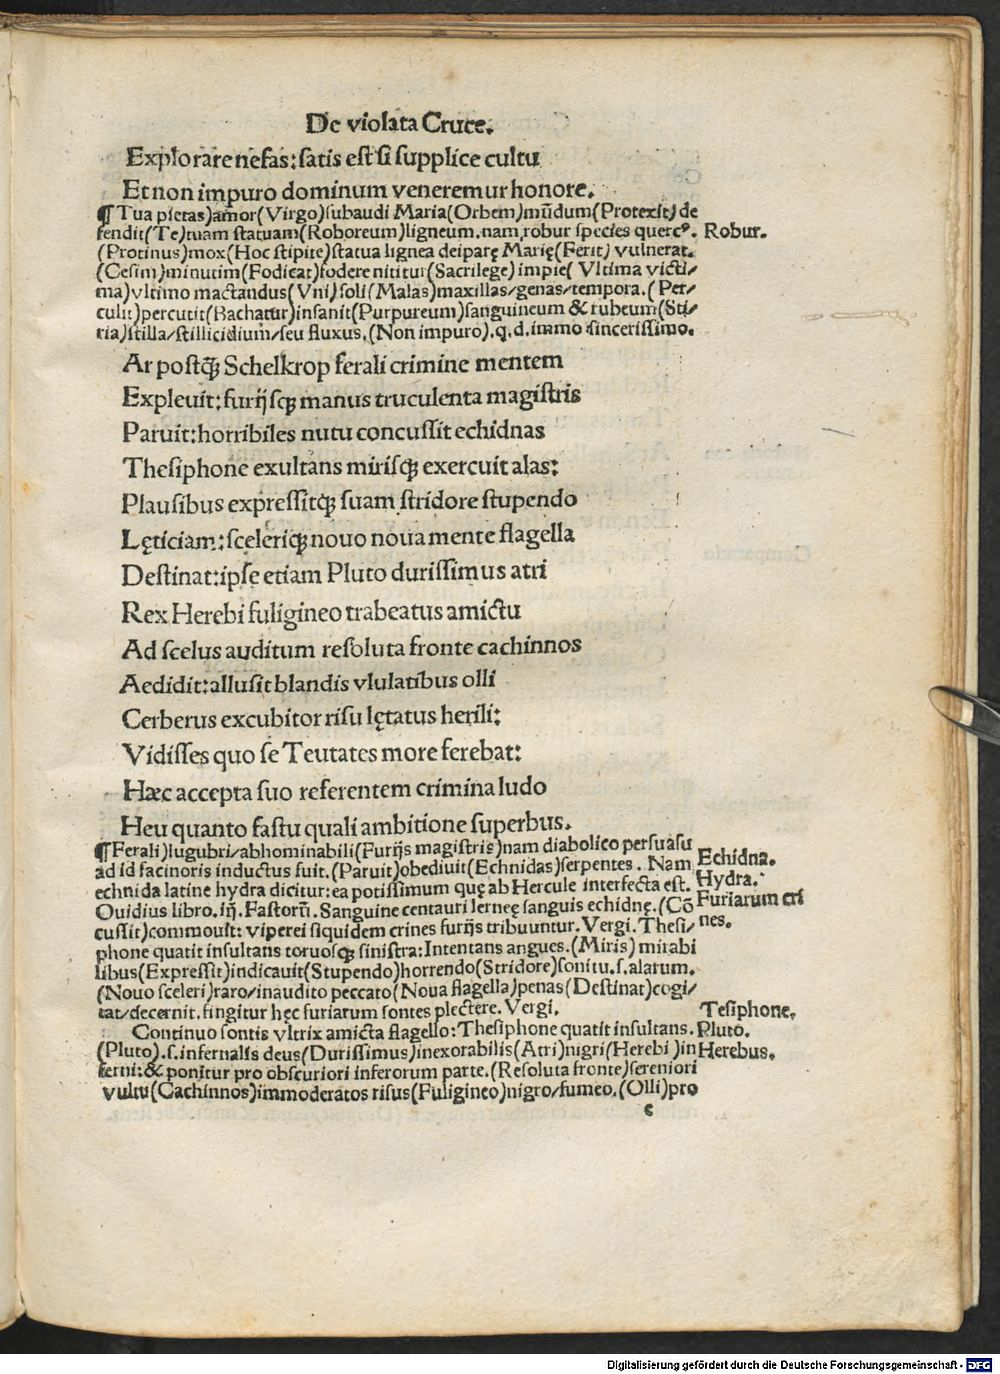 De violata Cruce.
Explorare nefas: satis est si supplice cultu
Et non impuro dominum veneremur honore.
¶ Tua pietas)amor(Virgo)subaudi Maria(Orbem)mũdum(Protexit) de
fendit(Te)tuam statuam(Roboreum)ligneum.nam robur species quercꝰ. Robur.
(Protinus)mox(Hoc stipite)statua lignea deiparę Marię(Ferit) vulnerat.
(Cesim)minutim(Fodicat)fodere nititur(Sacrilege) impie( Vltima victi/
ma)vltimo mactandus(Vni)soli(Malas)maxillas/genas/tempora.(Per/
culit)percutit(Bachatur)insanit(Purpureum)sanguineum & rubeum(Sti/
ria)stilla/stillicidium/seu fluxus.(Non impuro).q.d.immo sincerissimo.
Ar postq̃ Schelkrop ferali crimine mentem
Expleuit: furijsqꝫ manus truculenta magistris
Paruit: horribiles nutu concussit echidnas
Thesiphone exultans mirisqꝫ exercuit alas:
Plausibus expressitqꝫ suam stridore stupendo
Lęticiam: sceleriqꝫ nouo noua mente flagella
Destinat: ipse etiam Pluto durissimus atri
Rex Herebi fuligineo trabeatus amictu
Ad scelus auditum resoluta fronte cachinnos
Aedidit: allusit blandis vlulatibus olli
Cerberus excubitor risu lętatus herili:
Vidisses quo se Teutates more ferebat:
Hæc accepta suo referentem crimina ludo
Heu quanto fastu quali ambitione superbus.
¶ Ferali)lugubri/abhominabili(Furijs magistris)nam diabolico persuasu
ad id facinoris inductus fuit.(Paruit)obediuit(Echnidas)serpentes. Nam Echidna.
echnida latine hydra dicitur: ea potissimum quę ab Hercule interfecta est. Hydra.
Ouidius libro.iij.Fastorũ.Sanguine centauri lerneę sanguis echidnę.(Cõ Furiarum cri
cussit)commouit: viperei siquidem crines furijs tribuuntur.Vergi.Thesi/ nes.
phone quatit insultans toruosqꝫ sinistra: Intentans angues.(Miris) mirabi
libus(Expressit)indicauit(Stupendo)horrendo(Stridore)sonitu.s.alarum.
(Nouo sceleri)raro/inaudito peccato(Noua flagella)penas(Destinat)cogi/
tat/decernit.fingitur hęc furiarum sontes plectere. Vergi. Tesiphone.
Continuo sontis vltrix amicta flagello: Thesiphone quatit insultans. Pluto.
(Pluto).s.infernalis deus(Durissimus)inexorabilis(Atri)nigri(Herebi )in Herebus.
ferni: & ponitur pro obscuriori inferorum parte.(Resoluta fronte)sereniori
vultu(Cachinnos)immoderatos risus(Fuligineo)nigro/fumeo.(Olli)pro
c
Digitalisierung gefördert durch die Deutsche Forschungsgemeinschaft - DFG